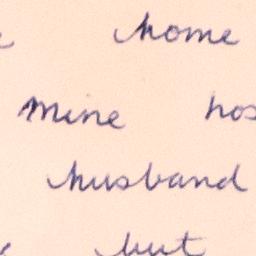 home
mine hos
husband
but